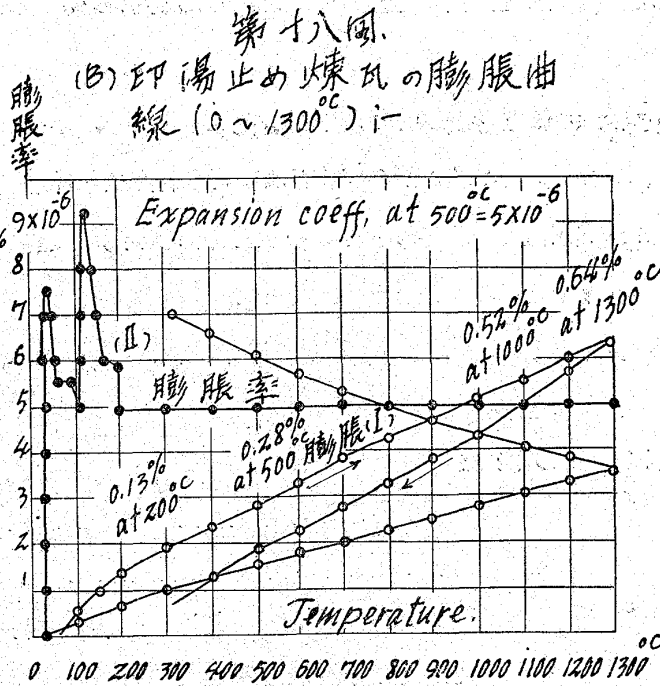 第十八図.
(B) 印湯止め煉瓦の膨脹曲
線 (0 ~ 1300°C) i-
膨脹率
%
9×10⁻⁶
Expansion coeff, at 500°C=5×10⁻⁶
8
7
6
5
4
3
2
1
(II)
膨脹率
0.13%
at 200°C
0.28%
at 500°C
膨脹(I)
0.52%
at 1000°C
0.64%
at 1300°C
Temperature.
0 100 200 300 400 500 600 700 800 900 1000 1100 1200 1300
°C